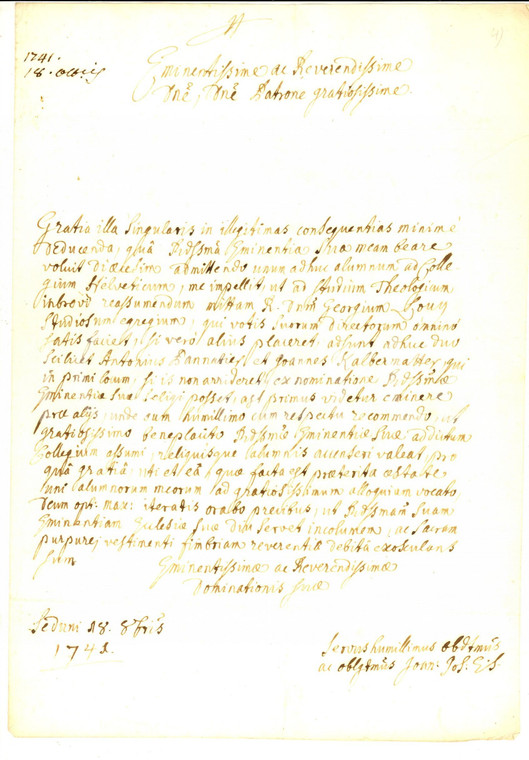 1741.
18. octris
Eminentissime ac Reverendissime
Dnē, Dnē Patrone gratiosissime.
Gratia illa Singularis in illegitimas consequentias minimè
deducenda, quâ Rdssma Eminentia Sua meam beare
voluit Diæcesim admittendo unum adhuc alumnum ad Colle
gium Helveticum, me impellit, ut ad Studium Theologium
inbrevi reassumendum mittam R. Dnm Georgium
Studiosum egregium, qui votis suorum directorum omnino
satis faciet, si vero alius placeret, adsunt adhuc duo
scilicet Antonius Pannatier, et Joannes Kalbermatter, qui
in primi locum, si is non arrideret, ex nominatione Rdssmæ
Eminentiæ Suæ seligi posset, ast primus videtur eminere
præ alijs, unde eum humillimo cum respectu recommendo, ut
gratiosissimo beneplacito Rdssmæ Eminentiæ Suæ addictum
Collegium assumi, reliquisque alumnis accenseri valeat, pro
quâ gratiâ, uti et eâ, quæ facta est præterita æstate
uni alumnorum meorum ad gratiosissimum alloquium vocato
Deum opt: max: iteratis orabo precibus, ut Rdssmam Suam
Eminentiam Eclesiæ Suæ diu servet incolumem, ac Sacram
purpurei vestimenti fimbriam reverentiâ debitâ exosculans
sum Eminentissimæ ac Reverendissimæ
Dominationis Suæ
Seduni 18. 8bris
1741.
Servus humillimus obdtmus
ac oblgtmus Joan: Jos: Eps